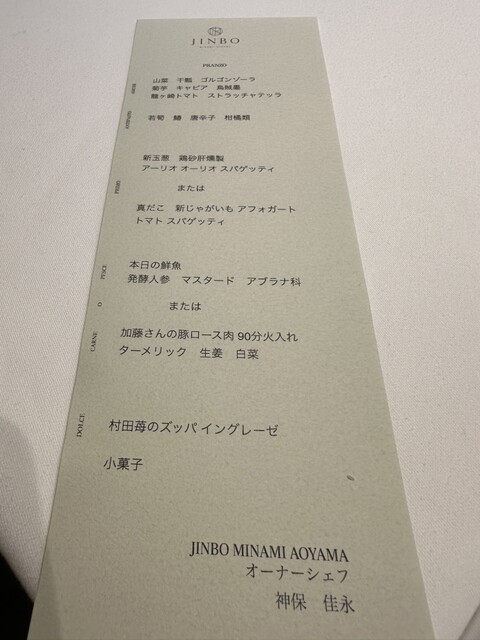 JINBO
MINAMI AOYAMA
PRANZO
山菜　干瓢　ゴルゴンゾーラ
菊芋　キャビア　烏賊墨
龍ヶ崎トマト　ストラッチャテッラ
若筍　鰆　唐辛子　柑橘類
PRIMO
新玉葱　鶏砂肝燻製
アーリオ オーリオ スパゲッティ
または
真だこ　新じゃがいも アフォガート
トマト スパゲッティ
CARNE O PESCE
本日の鮮魚
発酵人参　マスタード　アブラナ科
または
加藤さんの豚ロース肉 90分火入れ
ターメリック　生姜　白菜
DOLCE
村田苺のズッパ イングレーゼ
小菓子
JINBO MINAMI AOYAMA
オーナーシェフ
神保　佳永